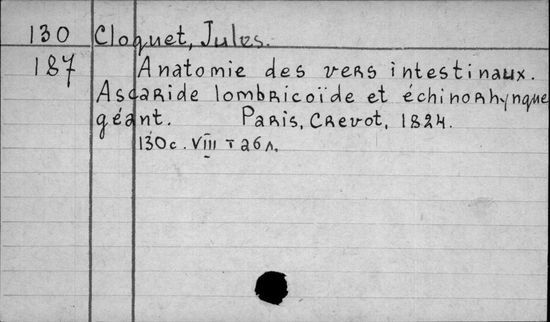 130 Cloquet, Jules.
187 Anatomie des vers intestinaux.
Ascaride lombricoïde et échinorhynque
géant. Paris, Crevot, 1824.
130c. VIII т 26 л.